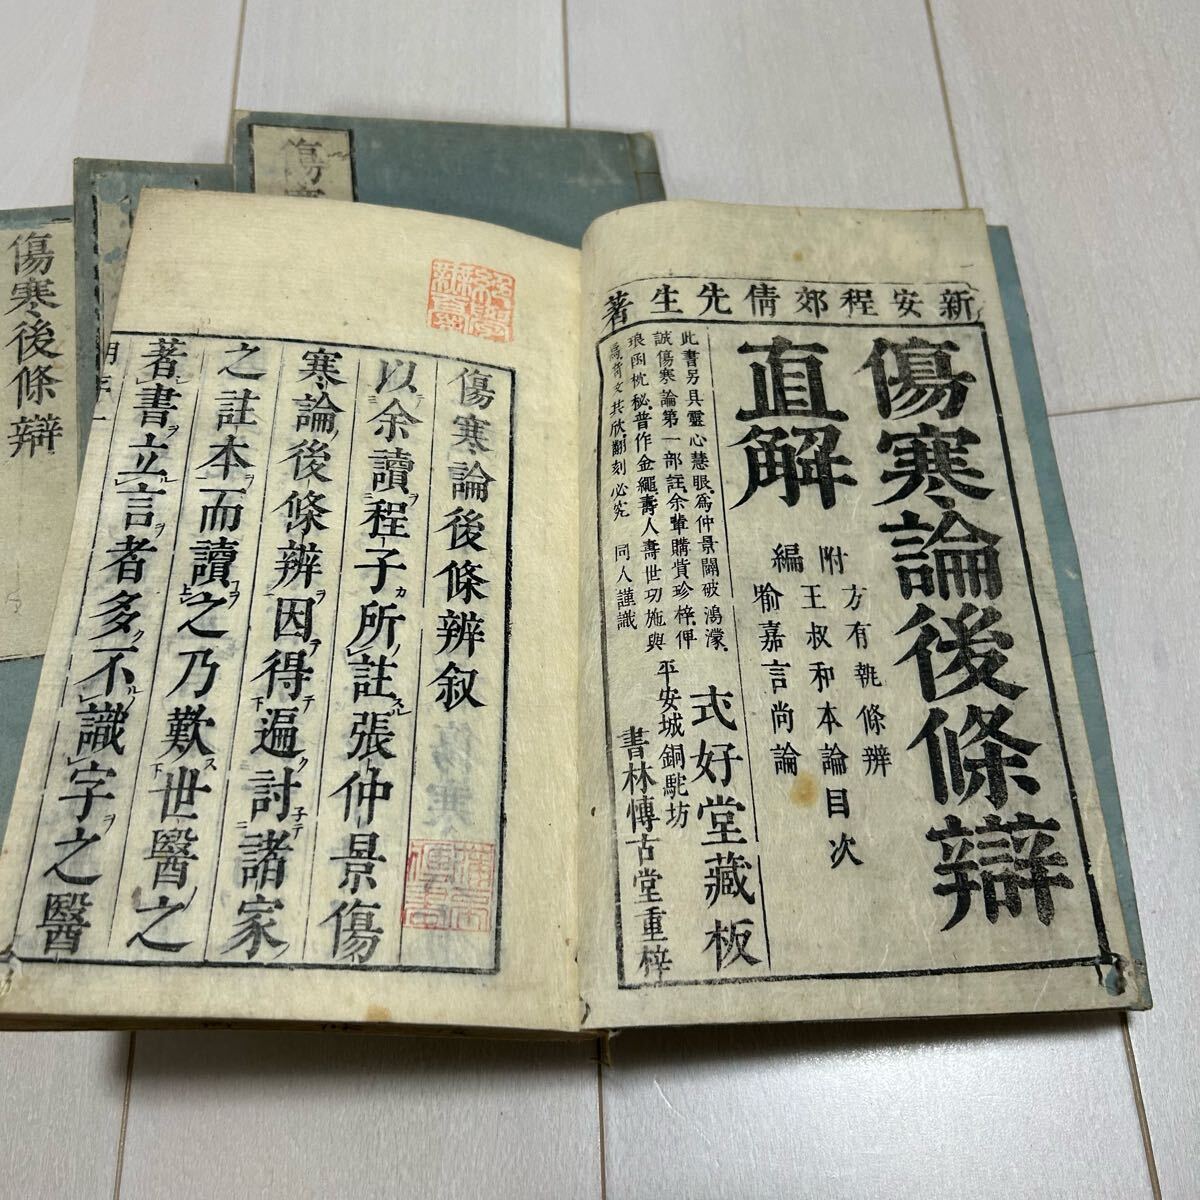 新安程郊倩先生著
傷寒論後條辯
直解
附
編
方有執條辨
王叔和本論目次
喻嘉言尚論
此書另具靈心慧眼為仲景闢破鴻濛
誠傷寒論第一部註余輩購貲珍梓俾
琅函枕秘普作金繩壽人壽世功施與
文共欣翻刻必究 同人謹識
式好堂藏板
平安城銅駝坊
書林博古堂重梓
傷寒論後條辨叙
以余讀程子所註張仲景傷
寒論後條辨因得遍討諸家
之註本而讀之乃歎世醫之
著書立言者多不識字之醫
傷寒後條辯
傷寒